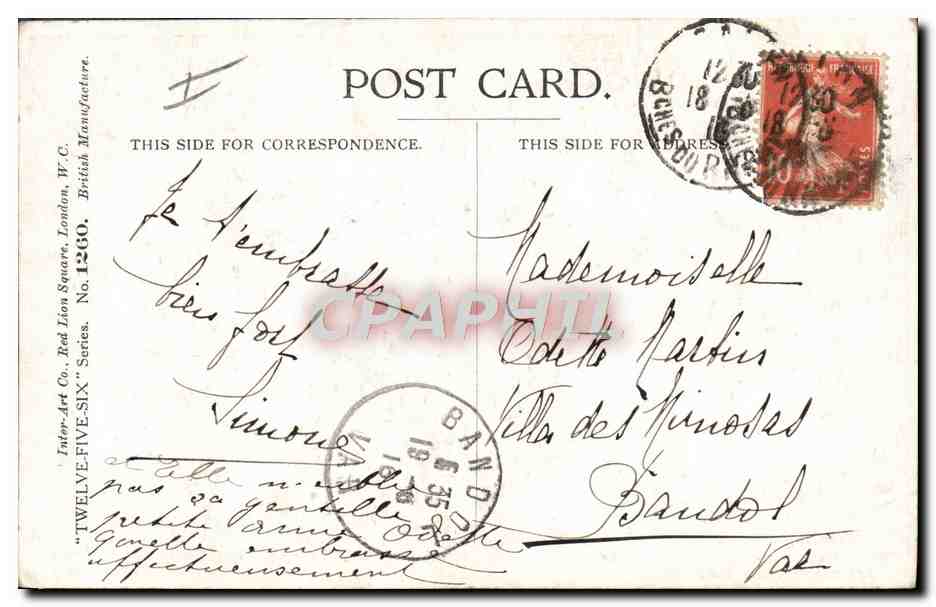 POST CARD.
THIS SIDE FOR CORRESPONDENCE.
THIS SIDE FOR ADDRESS
Inter-Art Co., Red Lion Square, London, W.C.
"TWELVE-FIVE-SIX" Series. No. 1260. British Manufacture.
Je t'embrasse
bien fort
Simone
et Elle n'oublie
pas sa gentille
petite amie Odette
qu'elle embrasse
affectueusement
Mademoiselle
Odette Martin
Villa des Mimosas
Bandol
Var
BANDOL
6 35
19 - 6
16
VAR
12 30
18
16
BCHES DU R
FRANÇAISE
10
POSTES
CPAPHIL